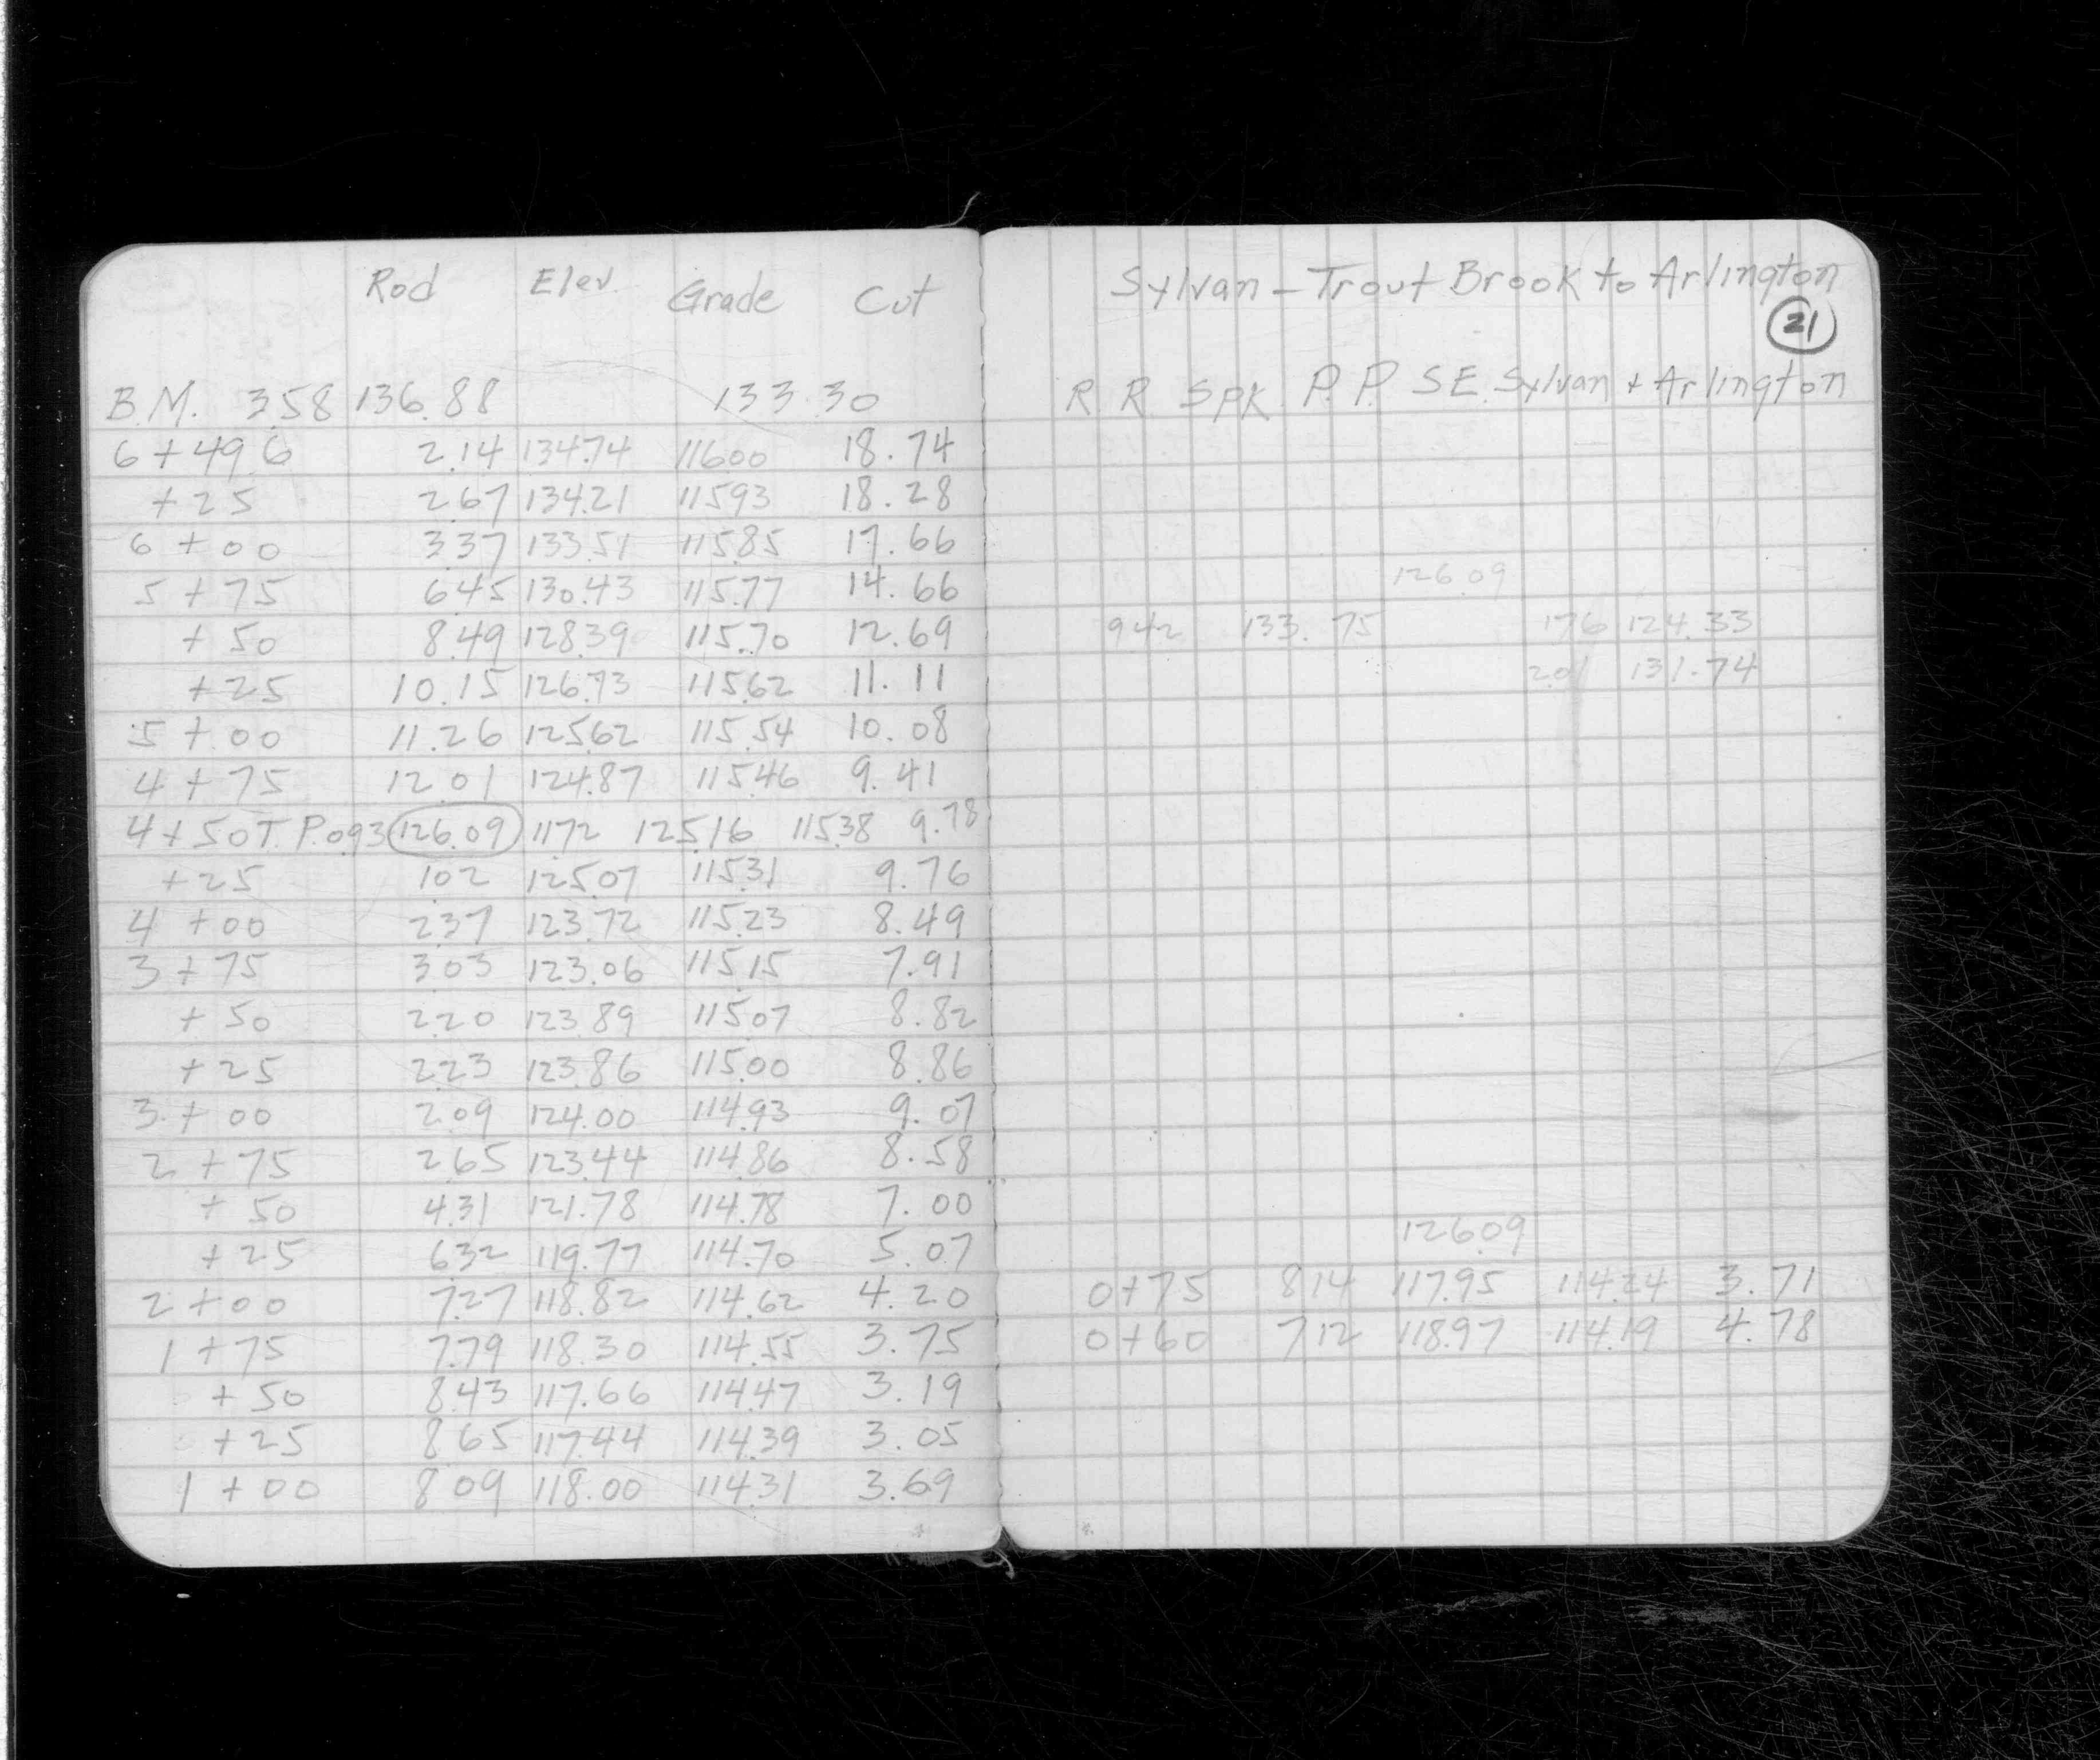 Rod Elev. Grade Cut
B.M. 3.58 136.88 133.30
6+49.6 2.14 134.74 116.00 18.74
+25 2.67 134.21 115.93 18.28
6+00 3.37 133.51 115.85 17.66
5+75 6.45 130.43 115.77 14.66
+50 8.49 128.39 115.70 12.69
+25 10.15 126.73 115.62 11.11
5+00 11.26 125.62 115.54 10.08
4+75 12.01 124.87 115.46 9.41
4+50 T.P. 0.93 126.09 11.72 125.16 115.38 9.78
+25 1.02 125.07 115.31 9.76
4+00 2.37 123.72 115.23 8.49
3+75 3.03 123.06 115.15 7.91
+50 2.20 123.89 115.07 8.82
+25 2.23 123.86 115.00 8.86
3+00 2.09 124.00 114.93 9.07
2+75 2.65 123.44 114.86 8.58
+50 4.31 121.78 114.78 7.00
+25 6.32 119.77 114.70 5.07
2+00 7.27 118.82 114.62 4.20
1+75 7.79 118.30 114.55 3.75
+50 8.43 117.66 114.47 3.19
+25 8.65 117.44 114.39 3.05
1+00 8.09 118.00 114.31 3.69
Sylvan - Trout Brook to Arlington
21
R.R. Spk. P.P. S.E. Sylvan + Arlington
126.09
942 133.75 176 124.33
201 131.74
126.09
0+75 8.14 117.95 114.24 3.71
0+60 7.12 118.97 114.19 4.78